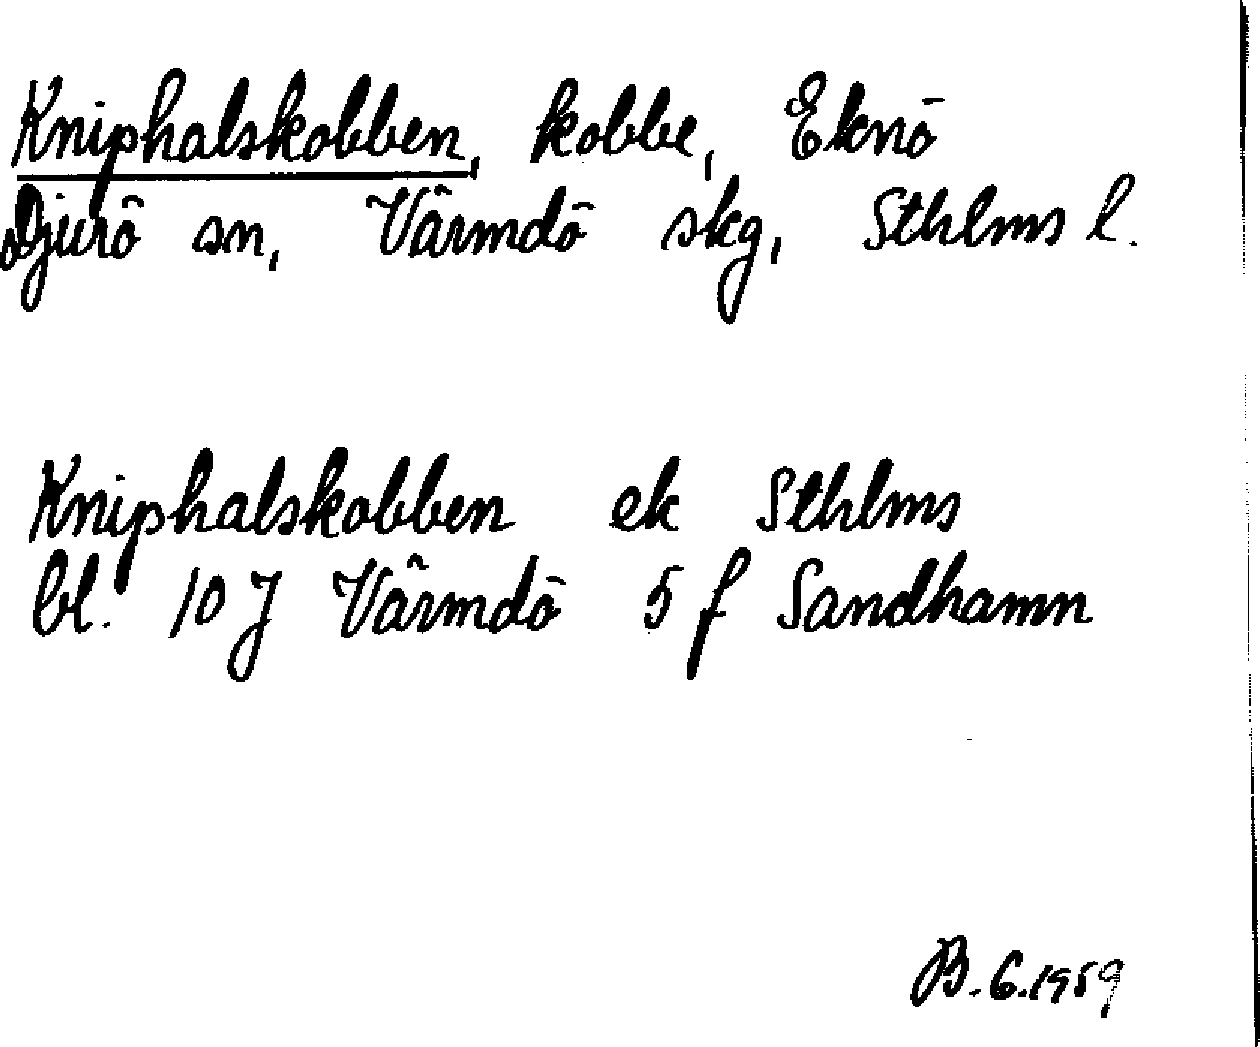 Kniphalskobben, kobbe, Eknö
Djurö sn, Värmdö skg, Sthlms l.
Kniphalskobben ek Sthlms
bl. 10 J Värmdö 5 f Sandhamn
B. 6. 1959